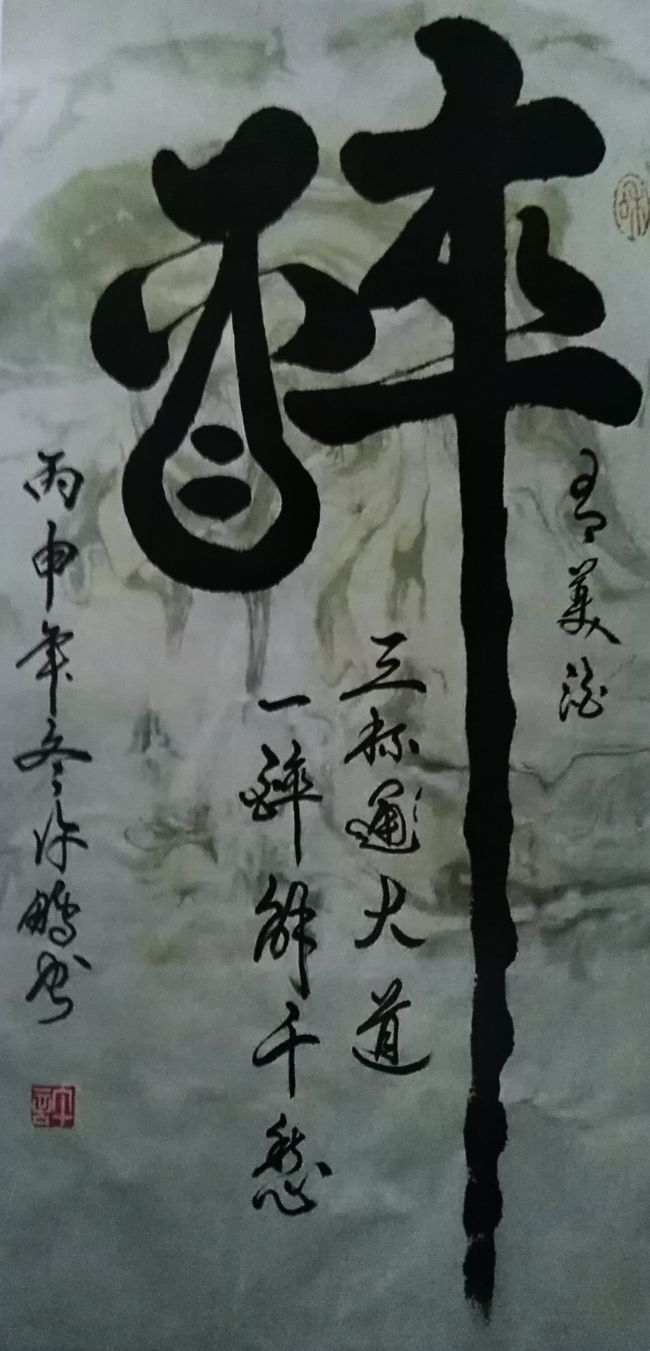 醉
美酒
三杯通大道
一醉解千愁
丙申年冬许鹏书